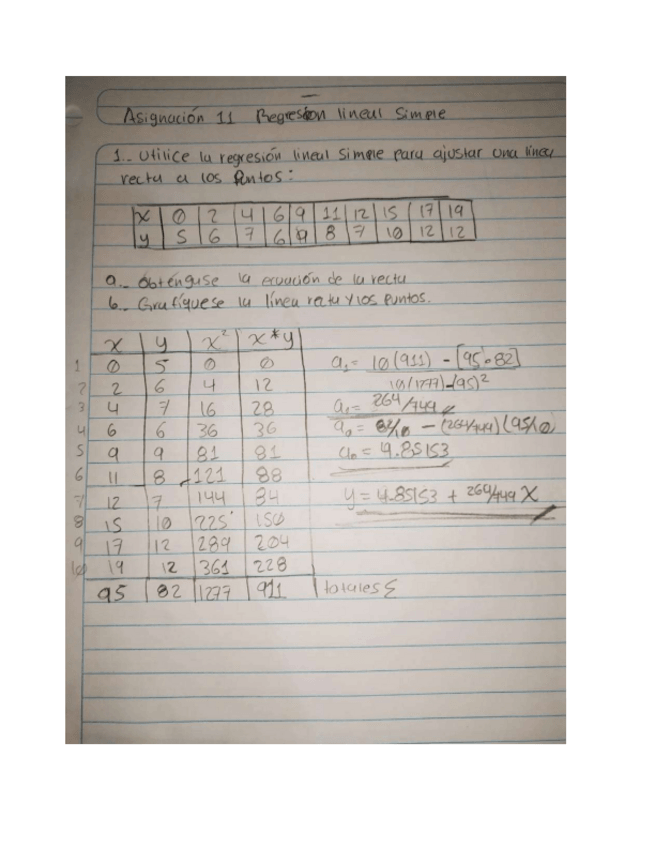 Asignación 11 Regresión lineal Simple
1.- Utilice la regresión lineal Simple para ajustar una linea
recta a los puntos:
x 0 2 4 6 9 11 12 15 17 19
y 5 6 7 6 9 8 7 10 12 12
a.- Obténguse la ecuación de la recta
b.- Grafíquese la línea recta y los puntos.
x y x² x*y
1 0 5 0 0
2 2 6 4 12
3 4 7 16 28
4 6 6 36 36
5 9 9 81 81
6 11 8 121 88
7 12 7 144 84
8 15 10 225 150
9 17 12 289 204
10 19 12 361 228
95 82 1277 911 totales Σ
a₁= 10(911) - [95•82]
10(1277)-(95)²
a₁= 264/749
a₀= 82/10 - (264/749)(95/10)
a₀= 4.85153
y = 4.85153 + 264/749 X